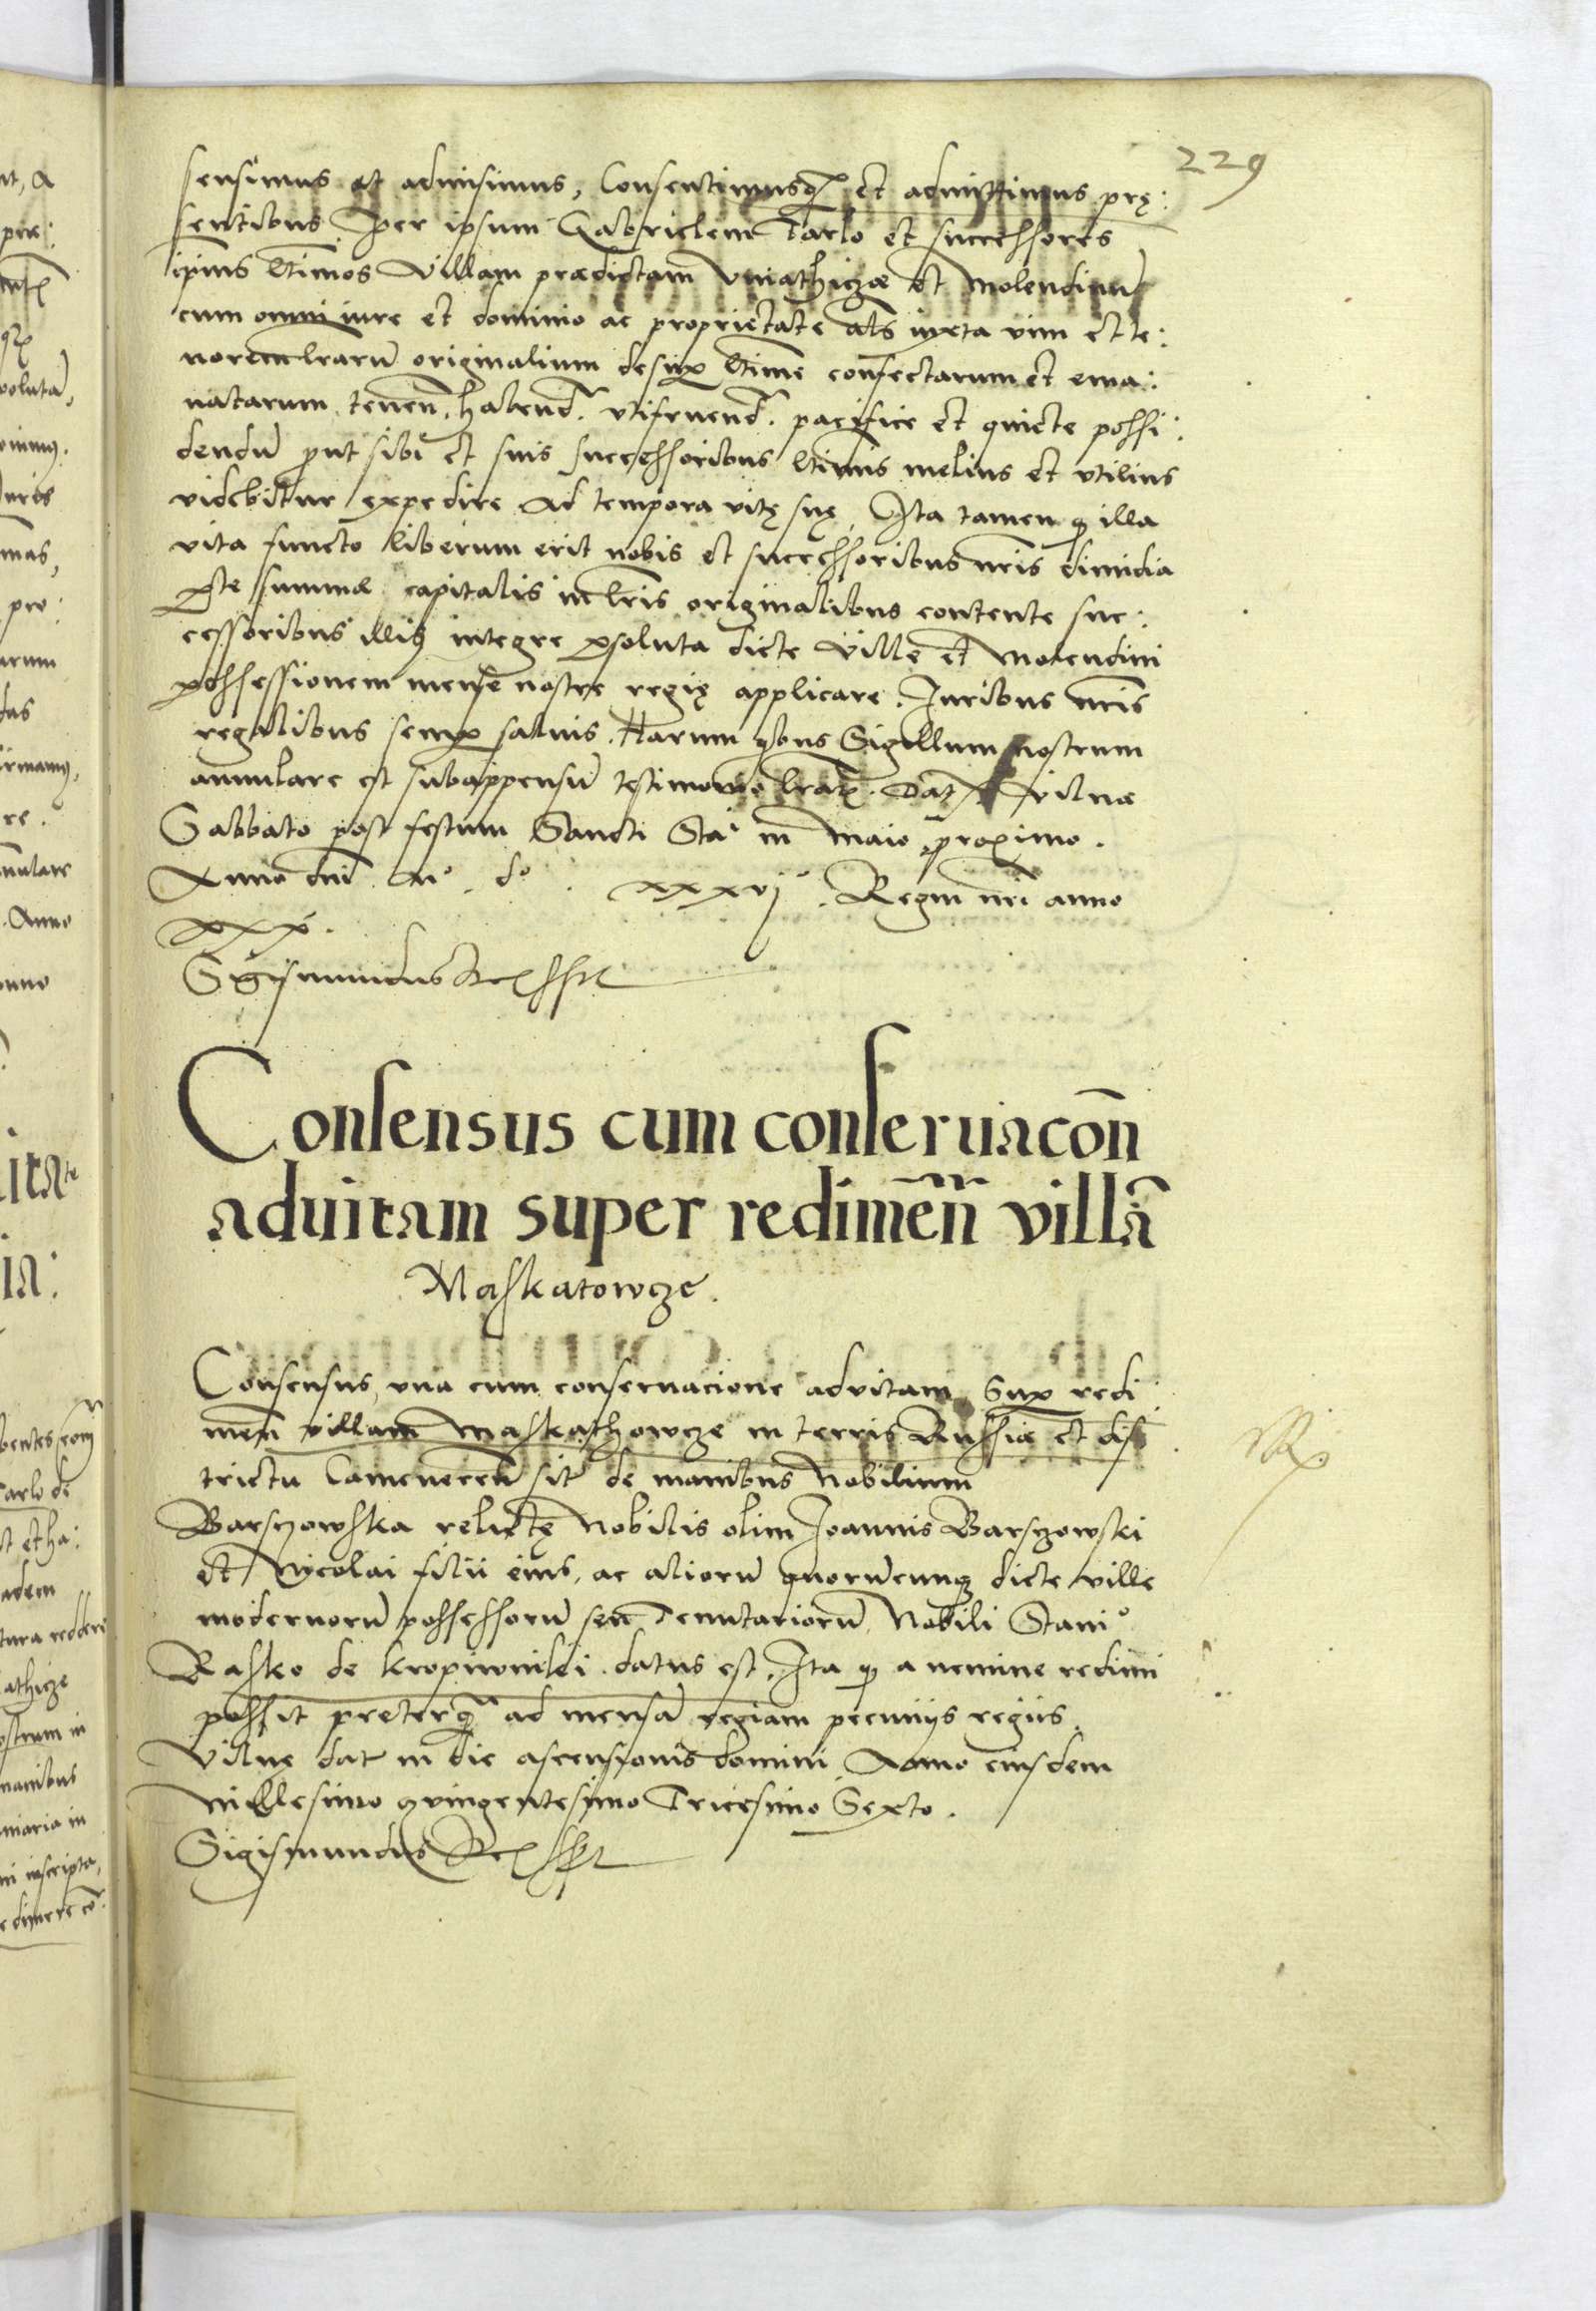 229
sensimus et admisimus, Consentimusqꝫ et admittimus prę:
sentibus per ipsum Gabrielem Tarlo et successores
ipius ltimos Villam prædictam Vniathicze et Molendinū
cum omni iure et dominio ac proprietate als iuxta vim et te:
norem lrarū originalium desup ltime confectarum et ema:
natarum, tenen. habend. vtifruend. pacifice et quiete possi:
dendū put sibi et suis successoribus ltimis melius et vtilius
videbitur expedire ad tempora vitę suę, Ita tamen ꝙ illa
vita functo liberum erit nobis et successoribus nris dimidia
pte summæ capitalis in lris originalibus contente suc:
cessoribus illis integre psoluta dicte Ville et Molendini
possessionem mense nostre regię applicare. Iuribus nris
regalibus semp saluis. Harum qbus Sigillum nostrum
annulare est subappensū testimonio lrarꝫ. Dat Vilnæ
Sabbato post festum Sancti Sta° in Maio proximo.
Anno dni M°. d°. xxxvj°. Regni nri anno
xxx.
Sigismundus Rex sst
Consensus cum conseruacōn
aduitam super redimēn villā
Maskatowcze.
Consensus, vna cum conseruacione aduitam Sup redi
men villam Maskathowcze in terris Russiæ et dis
trictu Camenecen sit de manibus Nobilium
Barszowska relictę Nobilis olim Joannis Barszowski
et Nycolai filii eius, ac aliorū quorūcunqꝫ dicte ville
modernorū possessorū seu Tenutariorū, Nobili Stani°
Rasko de Kropiwniki datus est, Ita ꝙ a nemine redimi
possit preterqꝫ ad mensā regiam pecuniis regiis.
Vilnę dat in die ascensionis domini Anno eiusdem
Millesimo quingentesimo Tricesimo Sexto.
Sigismundus Rex sst